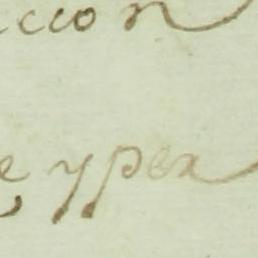 ccion
e y per